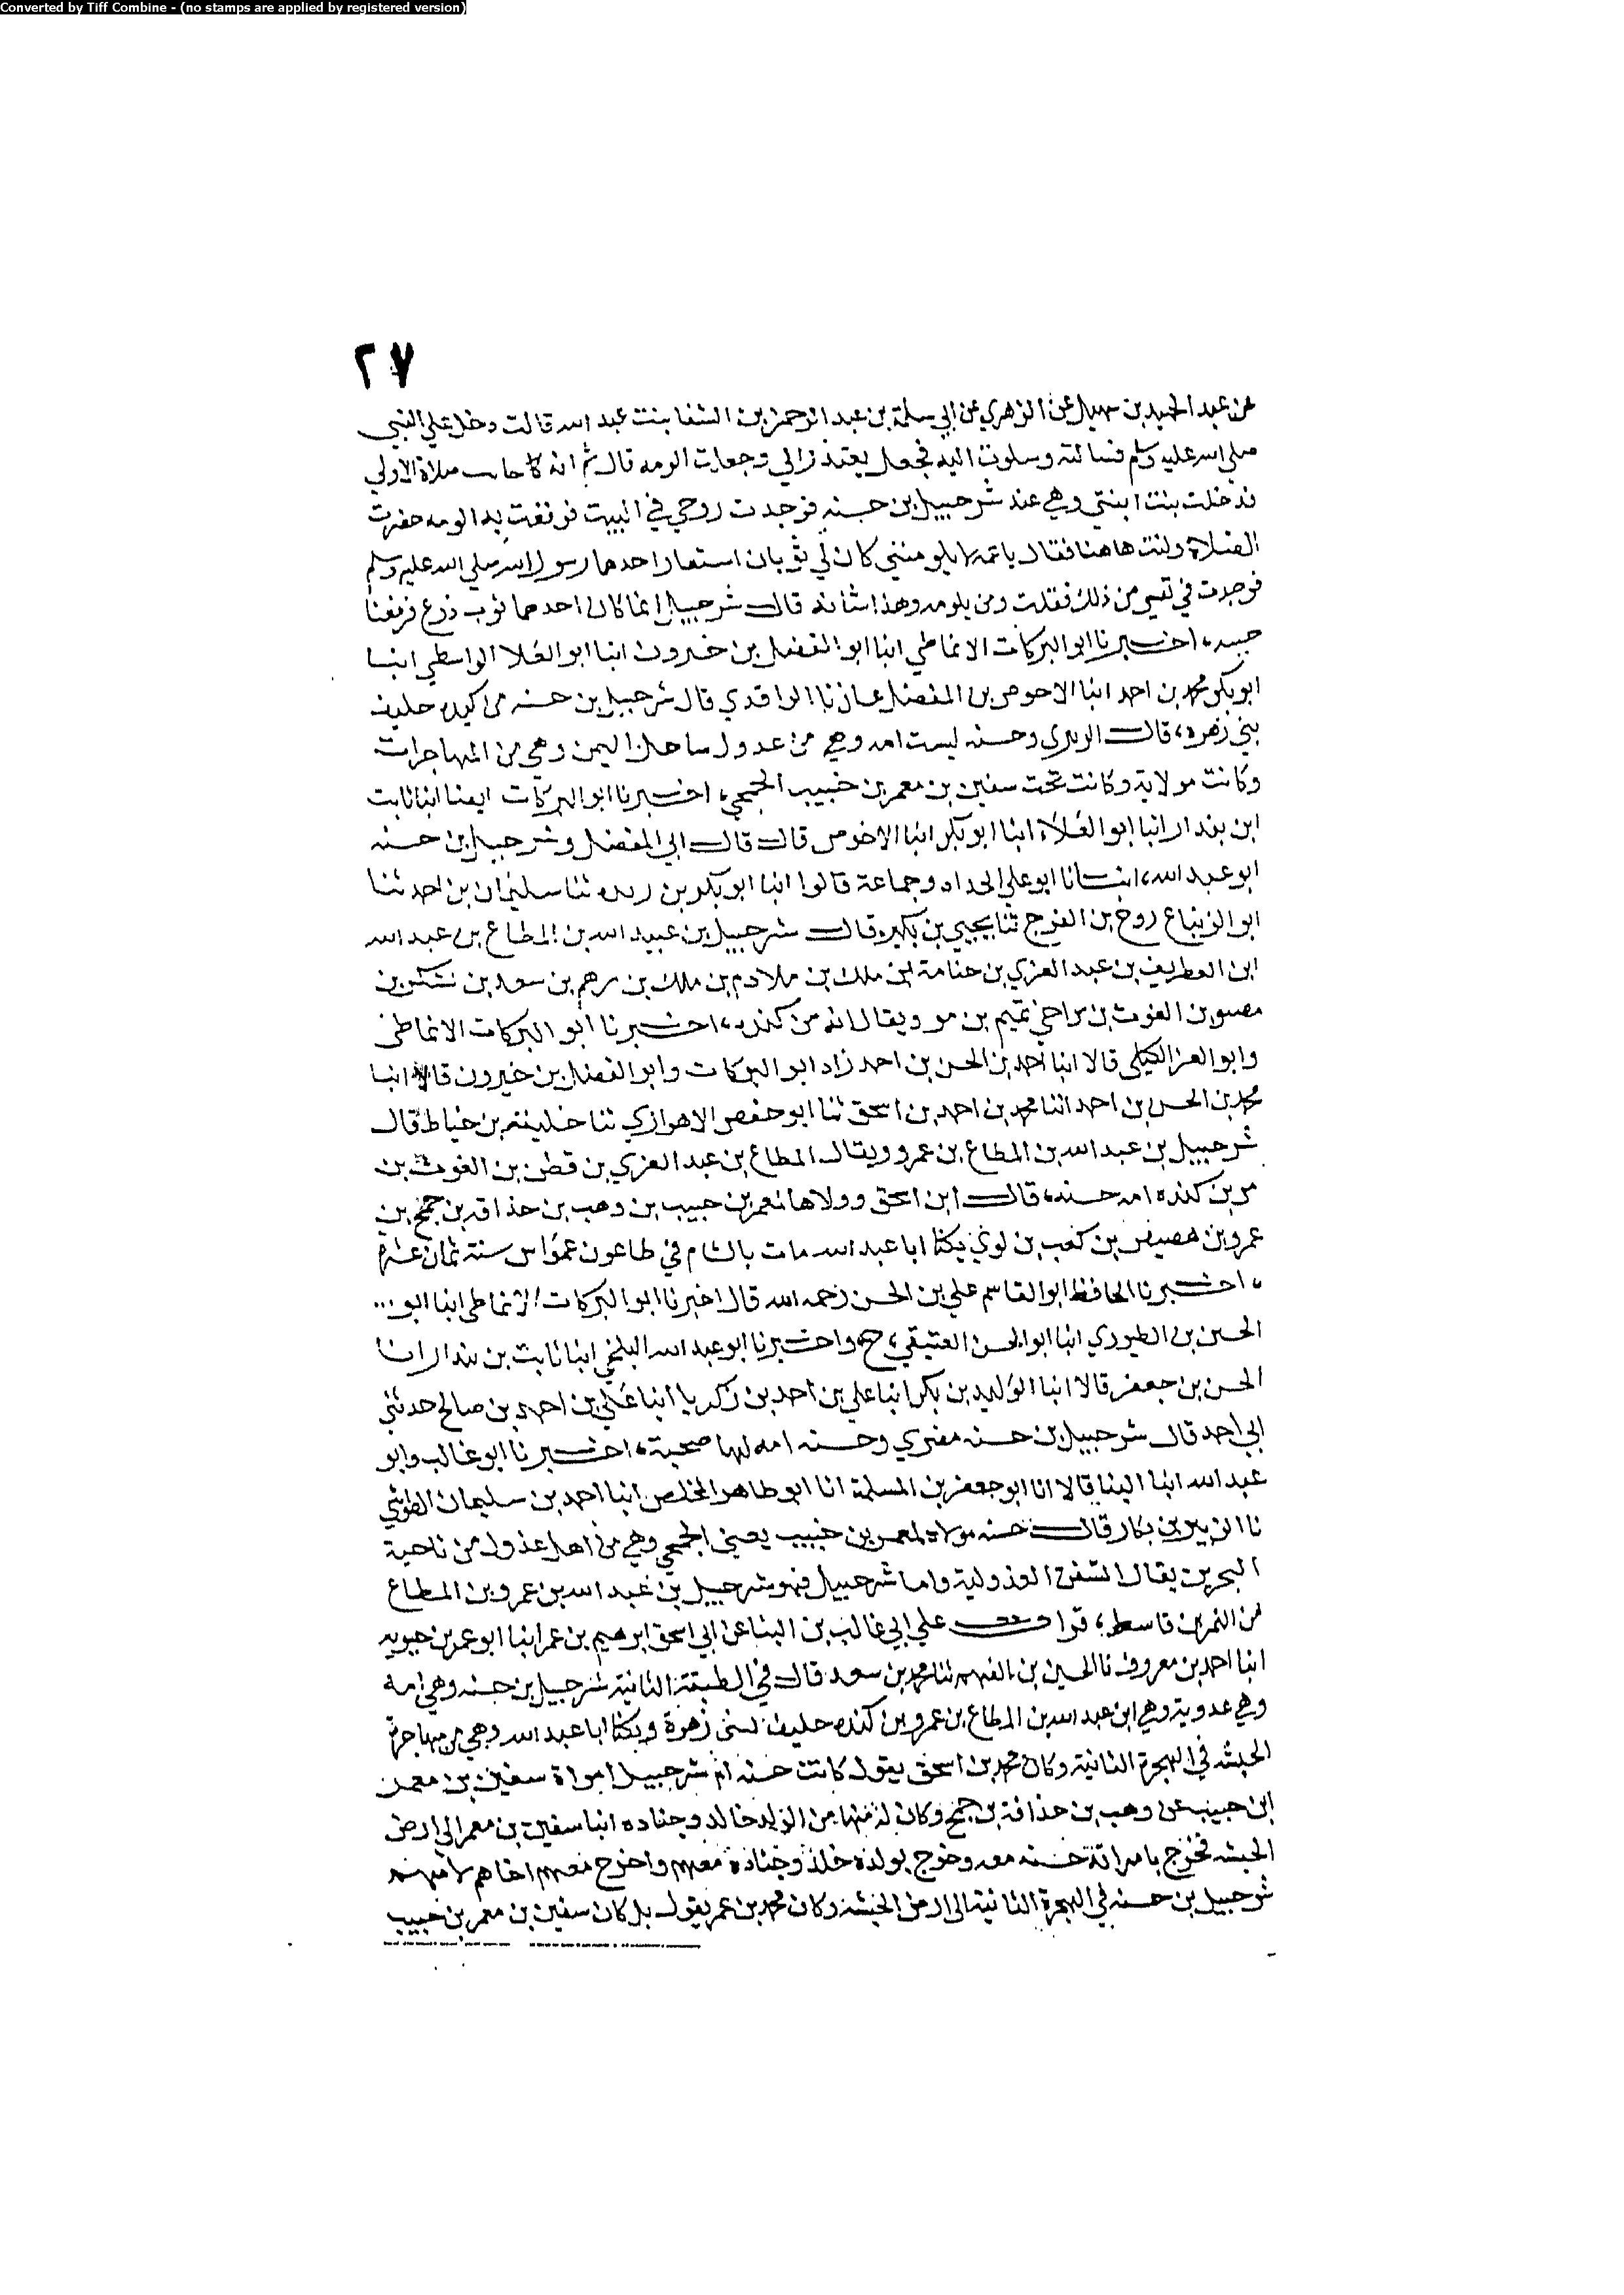 Converted by Tiff Combine - (no stamps are applied by registered version)
٢٧
عن عبد الحميد بن سهيل عن الزهري عن ابي سلمة بن عبد الرحمن بن الشفا بنت عبد الله قالت دخل علي النبي
صلي الله عليه وسلم فسالته وسلوت اليه فجعل يعتذر الي وجعلت الومه قال ثم انه صلاة الاولي
فدخلت بنت ابنتي وهي عند شرحبيل بن حسنه فوجدت زوجي في البيت فوقعت به الومه حضرت
الصلاة ولنت هاهنا فقال ياعمه لا يلومنني كان لي ثوبان استعار احدهما رسول الله صلي الله عليه وسلم
فوجدت في نفسي من ذلك فقلت ومن يلومه وهذا شانه قال شرحبيل انما كان احدهما ثوب درع فرقعنا
جيبه، اخبرنا ابو البركات الانماطي انبا ابو الفضل بن خيرون انبا ابو العلا الواسطي انبا
ابو بكر محمد بن احمد انبا الاحوص بن المفضل نا الواقدي قال شرحبيل بن حسنه من كنده حليف
بني زهره، قال وحسنه ليست امه وهي من عدول ساحل اليمن وهي من المهاجرات
وكانت مولاية وكانت تحت سفين بن معمر بن حبيب الجمحي، اخبرنا ابو البركات ايضا انبا ثابت
ابن بندار انبا ابو العلاء انبا ابو بكر انبا الاحوص قال قال ابي المفضل وشرحبيل بن حسنه
ابو عبد الله، انبانا ابو علي الحداد وجماعة قالوا انبا ابو بكر بن ريده ثنا سليمان بن احمد ثنا
ابو الزنباع روح بن الفرج ثنا يحيي بن بكير قال شرحبيل بن عبيد الله بن المطاع بن عبد الله
ابن الغطريف بن عبد العزي بن حثامة ابن ملك بن ملادم بن ملك بن رهم بن سعد بن يشكر بن
مصسو بن الغوث بن مراخي تميم بن مر ويقال انه من كنده، اخبرنا ابو البركات الانماطي
وابو العز الكيلي قالا انبا احمد بن الحسن بن احمد زاد ابو البركات وابو الفضل بن خيرون قالا انبا
محمد بن الحسن بن احمد انبا محمد بن احمد بن اسحق ثنا ابو حفص الاهوازي ثنا خليفة بن خياط قال
شرحبيل بن عبد الله بن المطاع بن عمرو ويقال المطاع بن عبد العزي بن قطن بن الغوث بن
مر بن كنده امه حسنه، قال ابن اسحق وولاها لمعمر بن حبيب بن وهب بن حذافه بن جمح بن
عمرو بن هصيص بن كعب بن لوي يكنا ابا عبد الله مات بالشام في طاعون عمواس سنة ثمان عشره
، اخبرنا الحافظ ابو القاسم علي بن الحسن رحمه الله قال اخبرنا ابو البركات الانماطي انبا ابو...
الحسين بن الطيوري انبا ابو الحسن العتيقي، ح، واخبرنا ابو عبد الله البلخي انبا ثابت بن بندار انبا
الحسن بن جعفر قالا انبا الوليد بن بكر انبا علي بن احمد بن زكريا انبا علي بن احمد بن صالح حدثني
ابي احمد قال شرحبيل بن حسنه مصري وحسنه امه لها صحبة، اخبرنا ابو غالب وابو
عبد الله ابنا البنا قالا انا ابو جعفر بن المسلمة انا ابو طاهر المخلص انبا احمد بن سليمان الطوسي
نا الزبير بن بكار قال حسنه مولاه لمعمر بن حبيب يعني الجمحي وهي من اهل عدول من ناحية
البحرين يقال السفن العدولية واما شرحبيل فهو شرحبيل بن عبد الله بن عمرو بن المطاع
من النمر بن قاسط، قرات علي ابي غالب بن البنا عن ابي اسحق ابرهيم بن عمر انبا ابو عمر بن حيويه
انبا احمد بن معروف نا الحسين بن الفهم ثنا محمد بن سعد قال في الطبقة الثانية شرحبيل بن حسنه وهي امه
وهي عدوية وهي ابن عبد الله بن المطاع بن عمرو بن كنده حليف لبني زهرة ويكنا ابا عبد الله وهي من مهاجرة
الحبشه في الهجرة الثانية وكان محمد بن اسحق يقول كانت حسنه ام شرحبيل امراة سفين بن معمر
ابن حبيب عن وهب بن حذافة بن جمح وكان له منها من الولد خالد وجناده ابنا سفين بن معمر الي ارض
الحبشه فخرج بامراته حسنه معه وخرج بولده خلد وجنادة معهم واخرج معهم اخاهم لامهم
شرحبيل بن حسنه في الهجرة الثانية الي ارض الحبشه وكان محمد بن عمر يقول بل كان سفين بن معمر بن حبيب